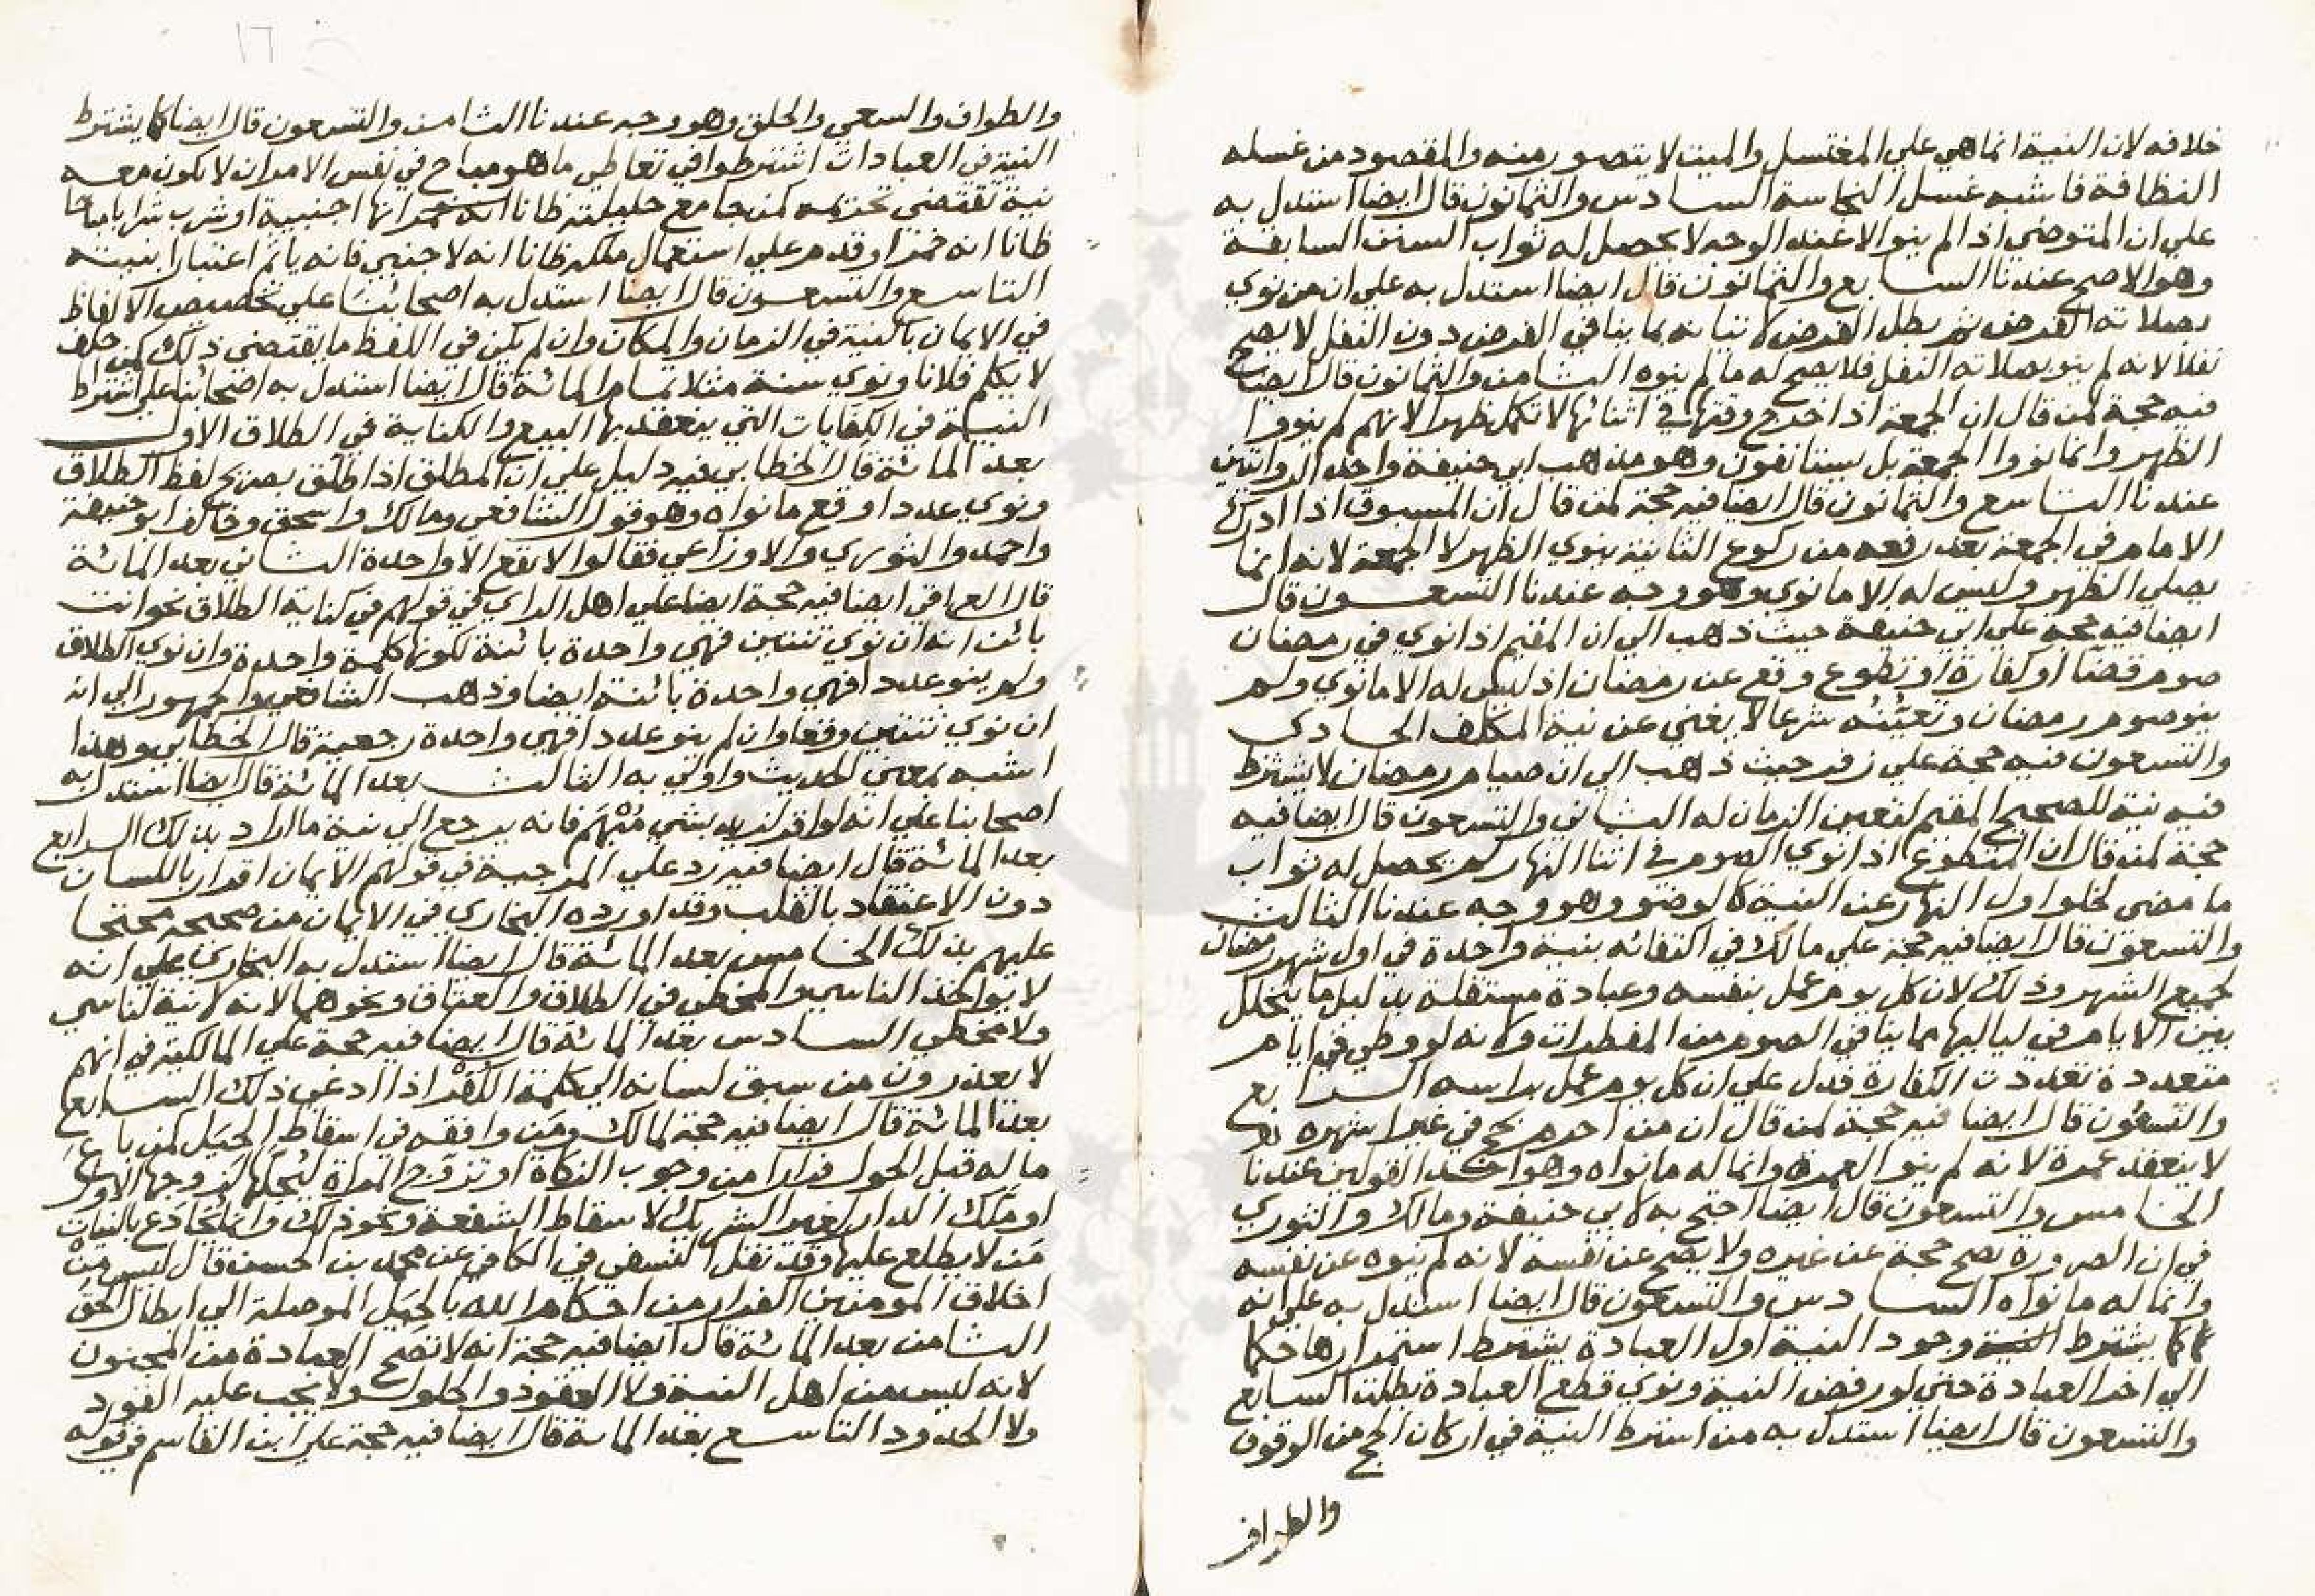 خلافه لان النية انما هي علي المغتسل والميت لا يتصور منه والمقصود من غسله
النظافة فاشبه غسل النجاسة السادس والثمانون قال ايضا استدل به
علي ان المتوضي اذا لم ينو الا عند الوجه لا يحصل له ثواب السنن السابقة
وهو الاصح عندنا السابع والثمانون قال ايضا استدل به علي ان من نوي
بصلاته الفرض ثم بطل الفرض لاتيانه بما ينافي الفرض دون النفل لا يصح
نفلا لانه لم ينو بصلاته النفل فلا يصح له ما لم ينوه الثامن والثمانون قال ايضا
فيه حجة لمن قال ان الجمعة اذا خرج وقتها في اثنائها لا تكمل ظهرا لانهم لم ينووا
الظهر وانما نووا الجمعة بل يستانفون وهو مذهب ابي حنيفة واحد الروايتين
عندنا التاسع والثمانون قال ايضا فيه حجة لمن قال ان المسبوق اذا ادرك
الامام في الجمعة بعد رفعه من ركوع الثانية ينوي الظهر لا الجمعة لانه انما
يصلي الظهر وليس له الا ما نوي وهو وجه عندنا التسعون قال
ايضا فيه حجة علي ابي حنيفة حيث ذهب الي ان المقيم اذا نوي في رمضان
صوم قضا او كفارة او تطوع وقع عن رمضان اذ ليس له الا ما نوي ولم
ينو صوم رمضان وتعينه شرعا لا يغني عن نية المكلف الحادي
والتسعون فيه حجة علي زفر حيث ذهب الي ان صيام رمضان لا يشترط
فيه نية للصحيح المقيم لتعين الزمان له الثاني والتسعون قال ايضا فيه
حجة لمن قال ان المتطوع اذا نوي الصوم في اثنا النهار لم يحصل له ثواب
ما مضى لخلو اول النهار عن النية كالوضو وهو وجه عندنا الثالث
والتسعون قال ايضا فيه حجة علي مالك في اكتفائه بنية واحدة في اول شهر رمضان
لجميع الشهر وذلك لان كل يوم عمل بنفسه وعبادة مستقلة بدليل ما يتخلل
بين الايام في لياليها مما ينافي الصوم من المفطرات ولانه لو وطي في ايام
متعددة تعددت الكفارة فدل علي ان كل يوم عمل براسه الرابع
والتسعون قال ايضا فيه حجة لمن قال ان من احرم بحج في غير اشهره
لا ينعقد عمرة لانه لم ينو العمرة وانما له ما نواه وهو احد القولين عندنا
الخامس والتسعون قال ايضا احتج به لابي حنيفة ومالك والثوري
في ان الصرورة يصح حجة عن غيره ولا يصح عن نفسه لانه لم ينوه عن نفسه
وانما له ما نواه السادس والتسعون قال ايضا استدل به علي انه
كما يشترط وجود النية اول العبادة يشترط استمرارها حكما
الي اخر العبادة حتي لو رفض النية ونوي قطع العبادة بطلت السابع
والتسعون قال ايضا استدل به من اشترط النية في اركان الحج من الوقوف
والطواف
١٦
والطواف والسعي والحلق وهو وجه عندنا الثامن والتسعون قال ايضا كما يشترط
النية في العبادات اشترطوا في تعاطي ما هو مباح في نفس الامر ان لا يكون معه
نية تقتضي تحريمه كمن جامع حليلته ظانا انها اجنبية او شرب شرابا مباحا
ظانا انه خمرا وقدم علي استعمال ملكه ظانا انه لاجنبي فانه ياثم اعتبارا بنيته
التاسع والتسعون قال ايضا استدل به اصحابنا علي تخصيص الالفاظ
في الايمان بالنية في الزمان والمكان وان لم يكن في اللفظ ما يقتضي ذلك كمن حلف
لا يكلم فلانا ونوي سنة مثلا تمام المائة قال ايضا استدل به اصحابنا علي اشتراط
النية في الكنايات التي ينعقد بها البيع والكناية في الطلاق الاول
بعد المائة قال الخطابي فيه دليل علي ان المطلق اذا طلق بصريح لفظ الطلاق
ونوي عددا وقع ما نواه وهو قول الشافعي ومالك واسحق وخالف ابو حنيفة
واحمد والثوري والاوزاعي فقالوا لا يقع الا واحدة الثاني بعد المائة
قال العراقي ايضا فيه حجة ايضا علي اهل الراي في قولهم في كناية الطلاق نحو انت
بائن انه ان نوي ثنتين فهي واحدة بائنة لكونها كلمة واحدة وان نوي الطلاق
ولم ينو عددا فهي واحدة بائنة ايضا وذهب الشافعي والجمهور الي انه
ان نوي ثنتين وقعا وان لم ينو عددا فهي واحدة رجعية قال الخطابي وهذا
اشبه بمعني الحديث واولي به الثالث بعد المائة قال ايضا استدل به
اصحابنا علي انه لو اقر لزيد بشي مُبْهَم فانه يرجع الي نية ما اراد بذلك الرابع
بعد المائة قال ايضا فيه رد علي المرجية في قولهم الايمان اقرار باللسان
دون الاعتقاد بالقلب وقد اورده البخاري في الايمان من صحيحه محتجا
عليهم بذلك الخامس بعد المائة قال ايضا استدل به البخاري علي انه
لا يواخذ الناسي والمخطي في الطلاق والعتاق ونحوهما لانه لا نية لناسي
ولا مخطي السادس بعد المائة قال ايضا فيه حجة علي المالكية في انهم
لا يعذرون من سبق لسانه الي كلمة الكفر اذا ادعي ذلك السابع
بعد المائة قال ايضا فيه حجة لمالك ومن وافقه في اسقاط الحيل كمن باع
ماله قبل الحول فرارا من وجوب الزكاة او تزوج المراة ليحلها لزوجها الاول
او ملك الدار لغير الشريك لاسقاط الشفعة ونحو ذلك وانما يخادع بالنيات
مَن لا يطلع عليها وقد نقل النسفي في الكافي عن محمد بن الحسن قال ليس مِنْ
اخلاق المومنين الفرار من احكام الله بالحيل الموصلة الي ابطال الحق
الثامن بعد المائة قال ايضا فيه حجة انه لا تصح العبادة من المجنون
لانه ليس من اهل النية ولا العقود ولا يجب عليه القود
ولا الحدود التاسع بعد المائة قال ايضا فيه حجة علي ابن القاسم في قوله